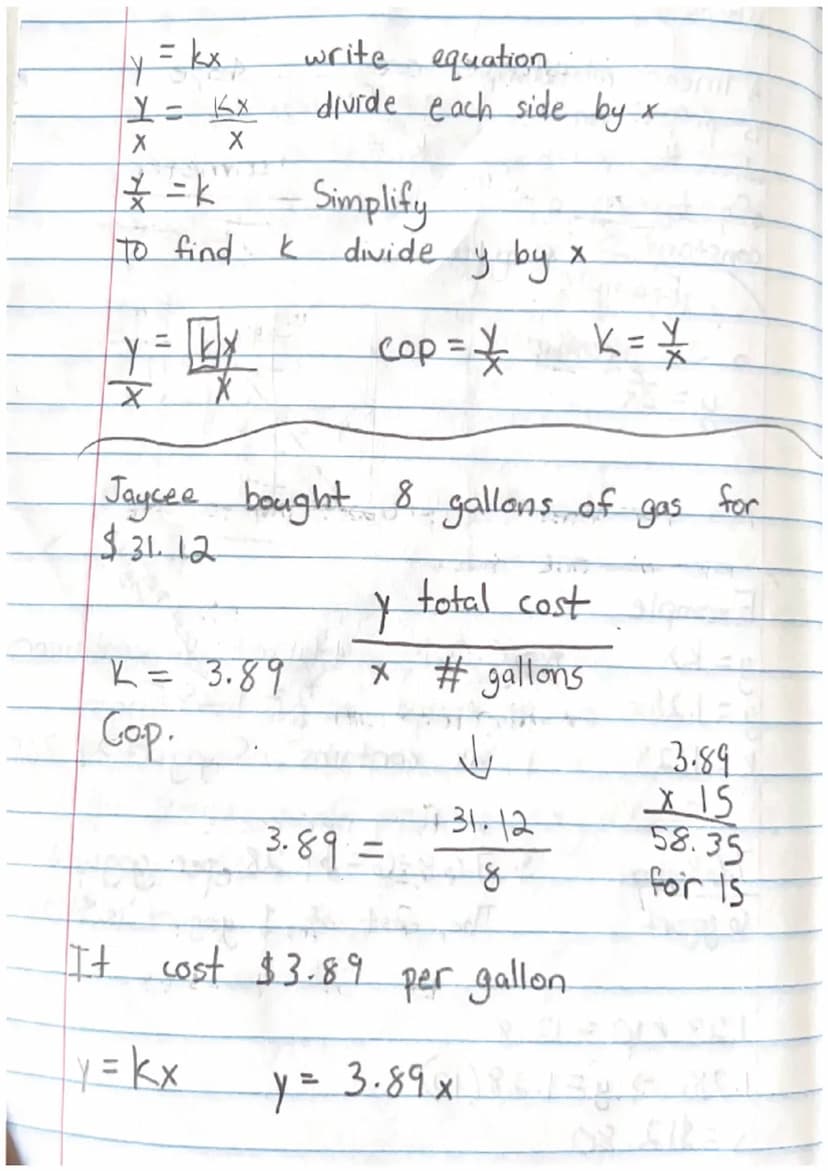 y = kx write equation
y/x = kx/x divide each side by x
y/x = k - Simplify
To find k divide y by x
y/x = kx/x cop = y/x K = y/x
Jaycee bought 8 gallons of gas for
$31.12
y total cost
K = 3.89 x # gallons
Cop.
↓ 3.89
x 15
3.89 = 31.12/8 58.35
for 15
It cost $3.89 per gallon
y = kx y = 3.89x